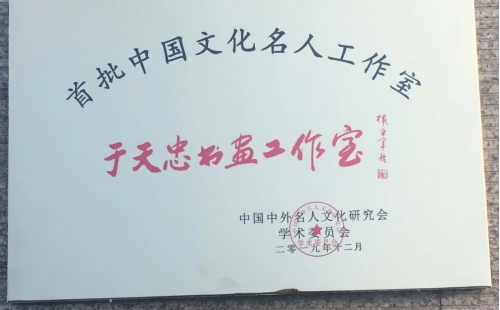 首批中国文化名人工作室
于天忠书画工作室
中国中外名人文化研究会
学术委员会
二零一九年十二月
学术委员会